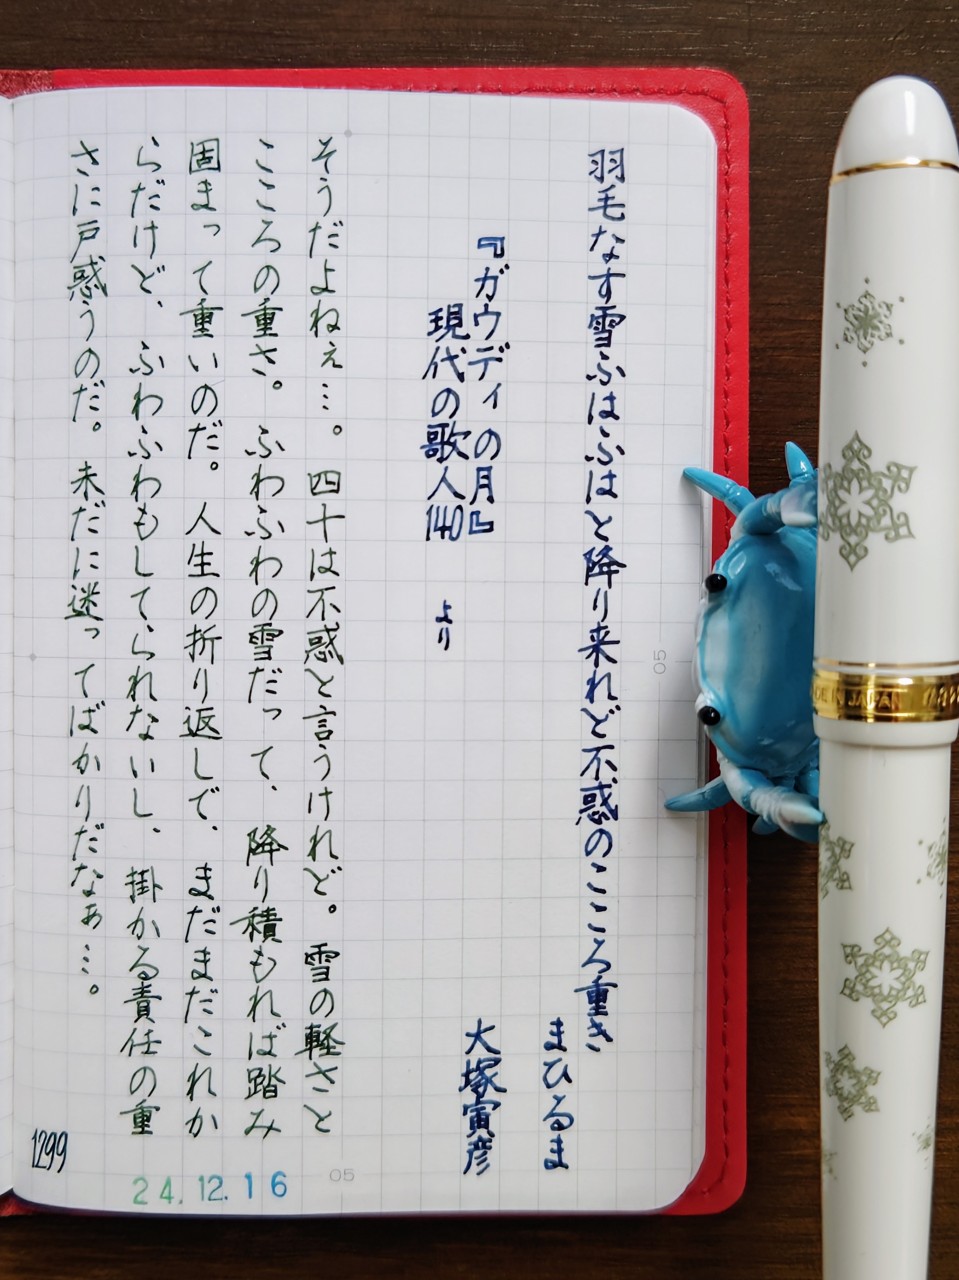 羽毛なす雪ふはふはと降り来れど不惑のこころ重き
まひるま
『ガウディの月』
大塚寅彦
現代の歌人140
より
そうだよねぇ…。四十は不惑と言うけれど。雪の軽さと
こころの重さ。ふわふわの雪だって、降り積もれば踏み
固まって重いのだ。人生の折り返しで、まだまだこれか
らだけど、ふわふわもしてられないし、掛かる責任の重
さに戸惑うのだ。未だに迷ってばかりだなぁ…。
1299
24.12.16
05
05
JAPAN